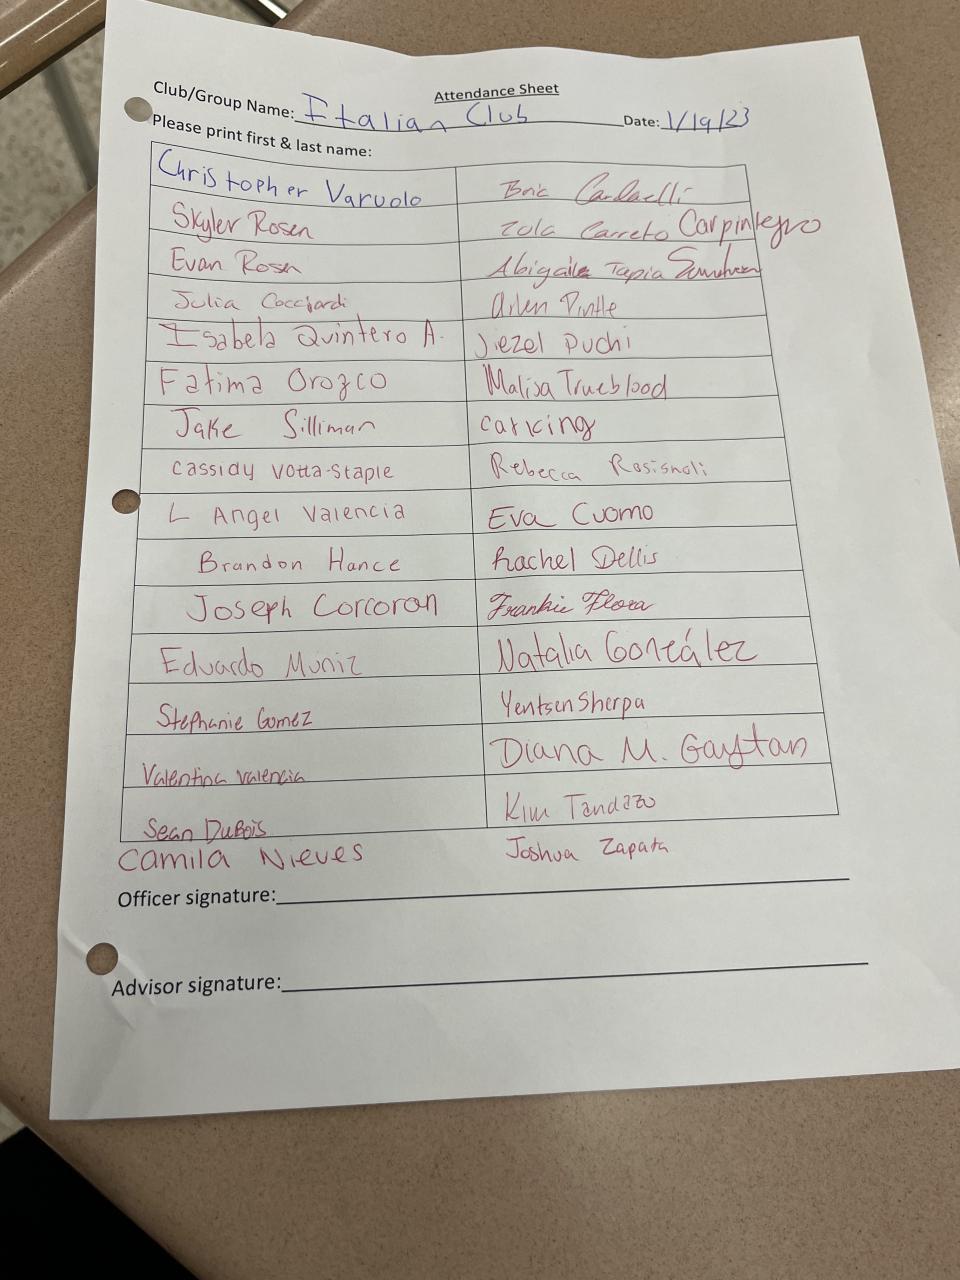 Attendance Sheet
Club/Group Name: Italian Club Date: 1/19/23
Please print first & last name:
Christopher Varuolo
Skyler Rosen
Evan Rosen
Julia Cocciardi
Isabela Quintero A.
Fatima Orozco
Jake Silliman
Cassidy Votta-Staple
L Angel Valencia
Brandon Hance
Joseph Corcoran
Eduardo Muniz
Stephanie Gomez
Valentina Valencia
Sean DuBois
Camila Nieves
Zola Carreto Carpinteyro
Abigaile Tapia
Arlen
Jiezel Puchi
Malisa Trueblood
Rebecca
Eva Cuomo
Rachel Dellis
Frankie Flora
Natalia González
Yentsen Sherpa
Diana M. Gaytan
Kim Tandazo
Joshua Zapata
Officer signature:
Advisor signature: